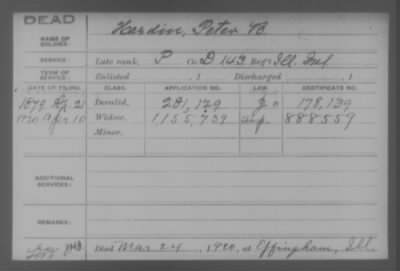 DEAD
NAME OF SOLDIER: Hardin, Peter B.
SERVICE: Late rank, P Co. D 143 Reg't Ill. Inf.
TERM OF SERVICE: Enlisted , 1 Discharged , 1
DATE OF FILING. CLASS. APPLICATION NO. LAW. CERTIFICATE NO.
1879 Ap 21 Invalid, 281,129 178,139
1920 Apr 10 Widow, 1,155,739 888559
Minor,
ADDITIONAL SERVICES:
REMARKS:
Died Mar 24, 1920, at Effingham, Ill.